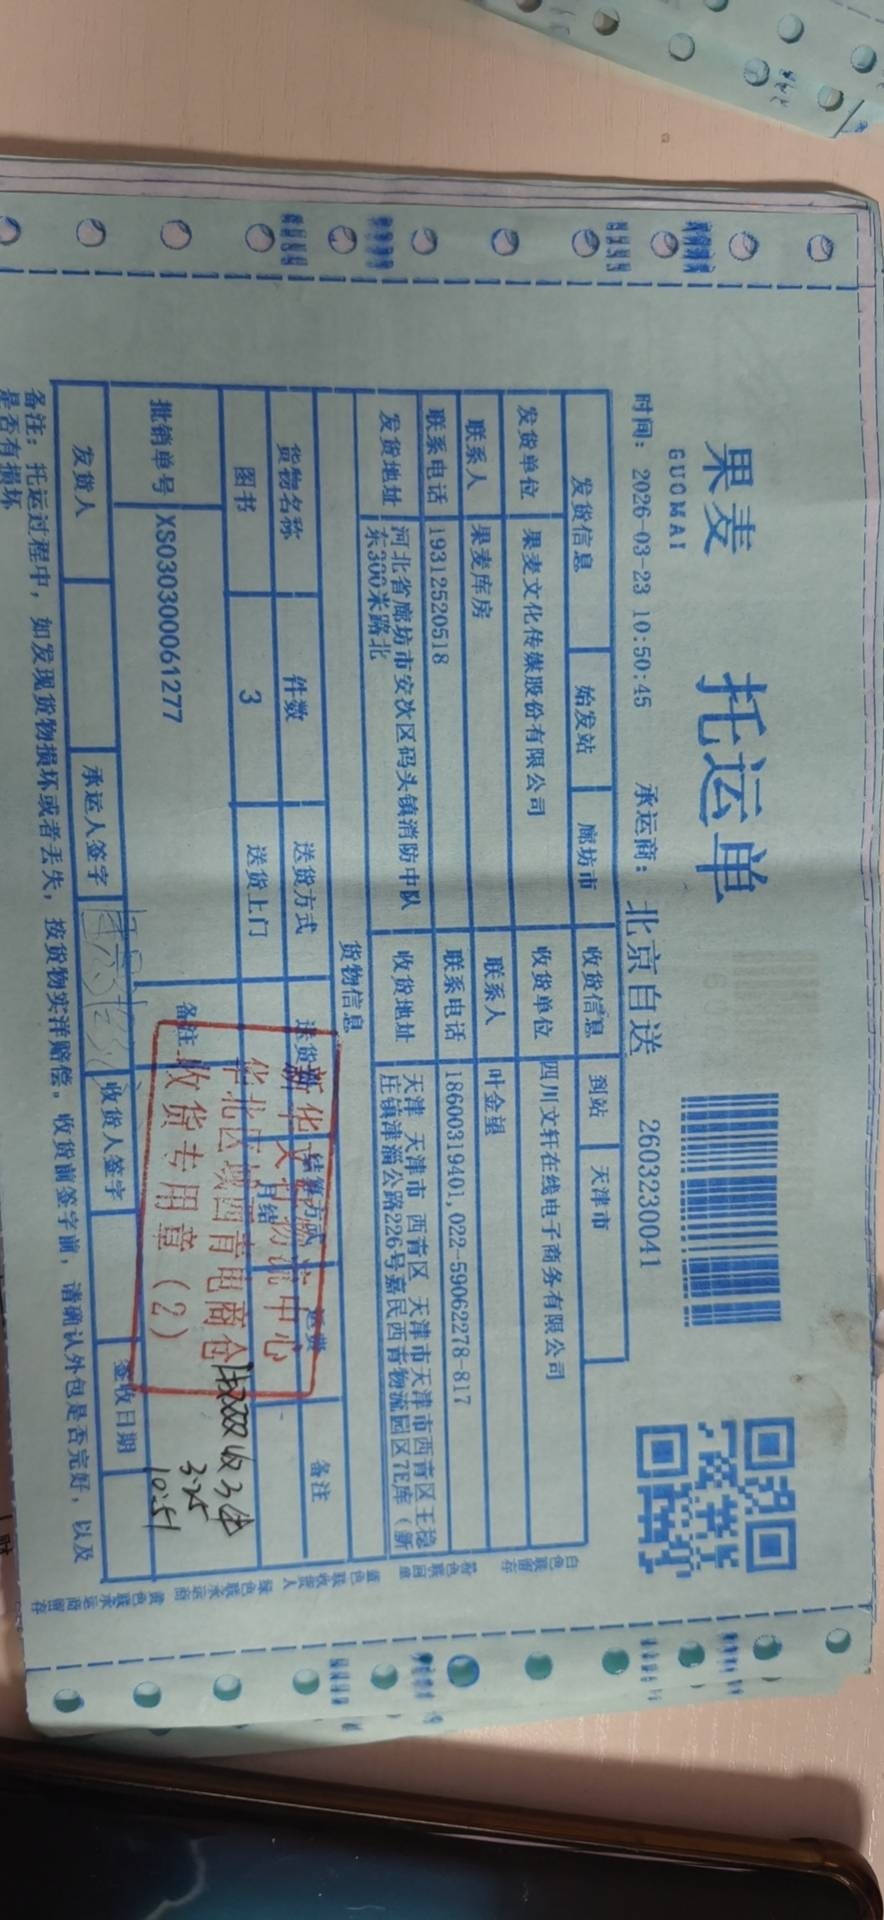 果麦
GUOMAI
托运单
时间: 2026-03-23 10:50:45 承运商: 北京自送 2603230041
发货信息 始发站 廊坊市 收货信息 到站 天津市
发货单位 果麦文化传媒股份有限公司 收货单位 四川文轩在线电子商务有限公司
联系人 果麦库房 联系人 叶金望
联系电话 19312520518 联系电话 18600319401,022-59062278-817
发货地址 河北省廊坊市安次区码头镇消防中队 收货地址 天津 天津市 西青区 天津市天津市西青区王稳
东300米路北 庄镇津淄公路226号嘉民西青物流园区7E库(新
货物信息
货物名称 件数 送货方式 送货 结算方式 运费 备注
图书 3 送货上门 月结
批销单号 XS030300061277 备注
新华文轩物流中心
华北区域西青电商仓
收货专用章(2)
收3件
3.25
10:51
发货人 承运人签字 收货人签字 签收日期
备注: 托运过程中, 如发现货物损坏或者丢失, 按货物实洋赔偿。收货前签字前, 请确认外包是否完好, 以及
是否有损坏
白色联留存 粉色联回单 蓝色联收货人 绿色联承运商 黄色联承运商留存